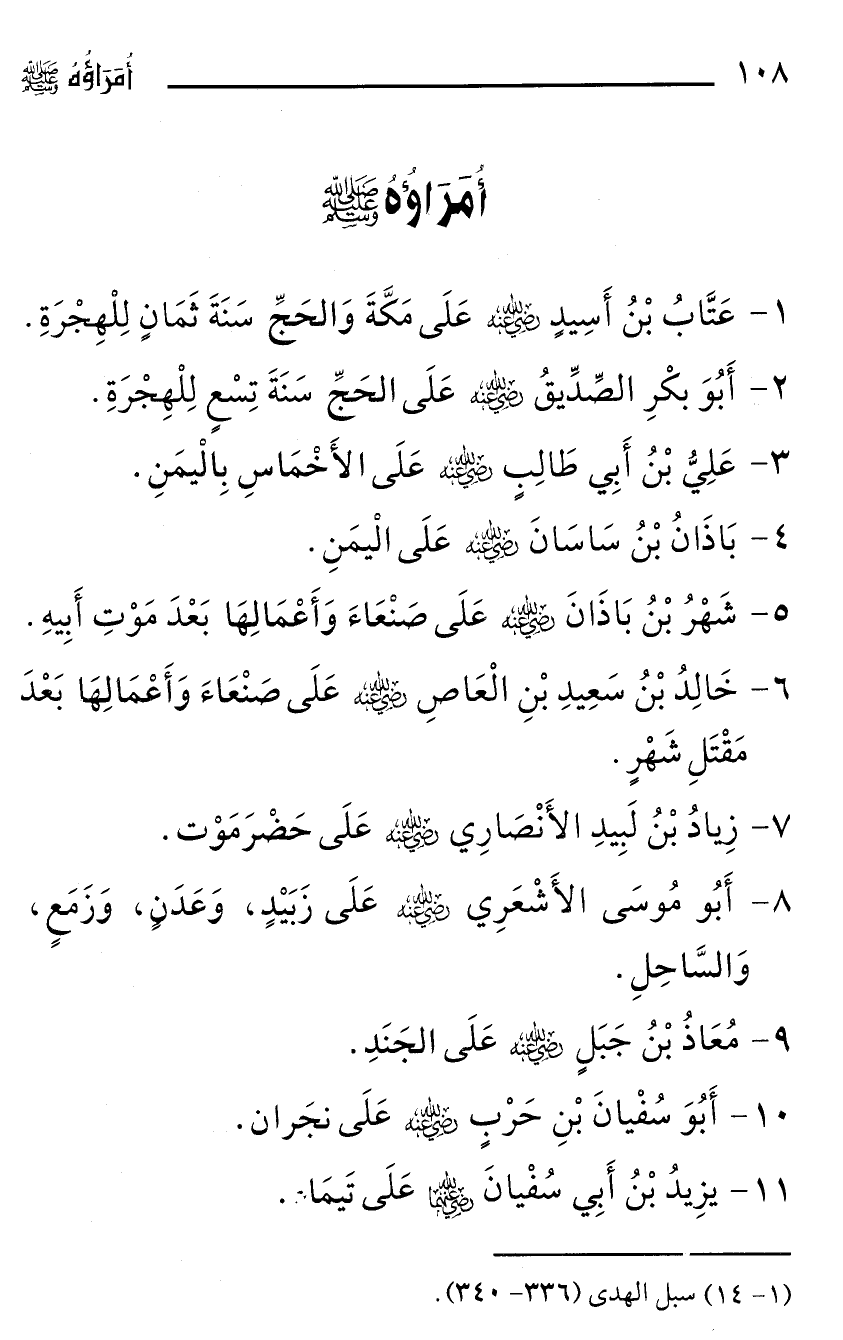 ١٠٨ أُمَرَاؤُهُ ﷺ
أُمَرَاؤُهُ ﷺ
١- عَتَّابُ بْنُ أَسِيدٍ رَضِيَ اللهُ عَنْهُ عَلَى مَكَّةَ وَالحَجِّ سَنَةَ ثَمَانٍ لِلْهِجْرَةِ.
٢- أَبُوَ بكْرِ الصِّدِّيقُ رَضِيَ اللهُ عَنْهُ عَلَى الحَجِّ سَنَةَ تِسْعٍ لِلْهِجْرَةِ.
٣- عَلِيُّ بْنُ أَبِي طَالِبٍ رَضِيَ اللهُ عَنْهُ عَلَى الأَخْمَاسِ بِالْيمَنِ.
٤- بَاذَانُ بْنُ سَاسَانَ رَضِيَ اللهُ عَنْهُ عَلَى الْيمَنِ.
٥- شَهْرُ بْنُ بَاذَانَ رَضِيَ اللهُ عَنْهُ عَلَى صَنْعَاءَ وَأَعْمَالِهَا بَعْدَ مَوْتِ أَبِيهِ.
٦- خَالِدُ بْنُ سَعِيدِ بْنِ الْعَاصِ رَضِيَ اللهُ عَنْهُ عَلَى صَنْعَاءَ وَأَعْمَالِهَا بَعْدَ
مَقْتَلِ شَهْرٍ.
٧- زِيادُ بْنُ لَبِيدِ الأَنْصَارِي رَضِيَ اللهُ عَنْهُ عَلَى حَضْرَمَوْت.
٨- أَبُو مُوسَى الأَشْعَرِي رَضِيَ اللهُ عَنْهُ عَلَى زَبَيْدٍ، وَعَدَنٍ، وَزَمَعٍ،
وَالسَّاحِلِ.
٩- مُعَاذُ بْنُ جَبَلٍ رَضِيَ اللهُ عَنْهُ عَلَى الجَنَدِ.
١٠- أَبُوَ سُفْيانَ بْنِ حَرْبٍ رَضِيَ اللهُ عَنْهُ عَلَى نجَران.
١١- يزِيدُ بْنُ أَبِي سُفْيانَ رَضِيَ اللهُ عَنْهُمَا عَلَى
(١- ١٤) سبل الهدى (٣٣٦- ٣٤٠).